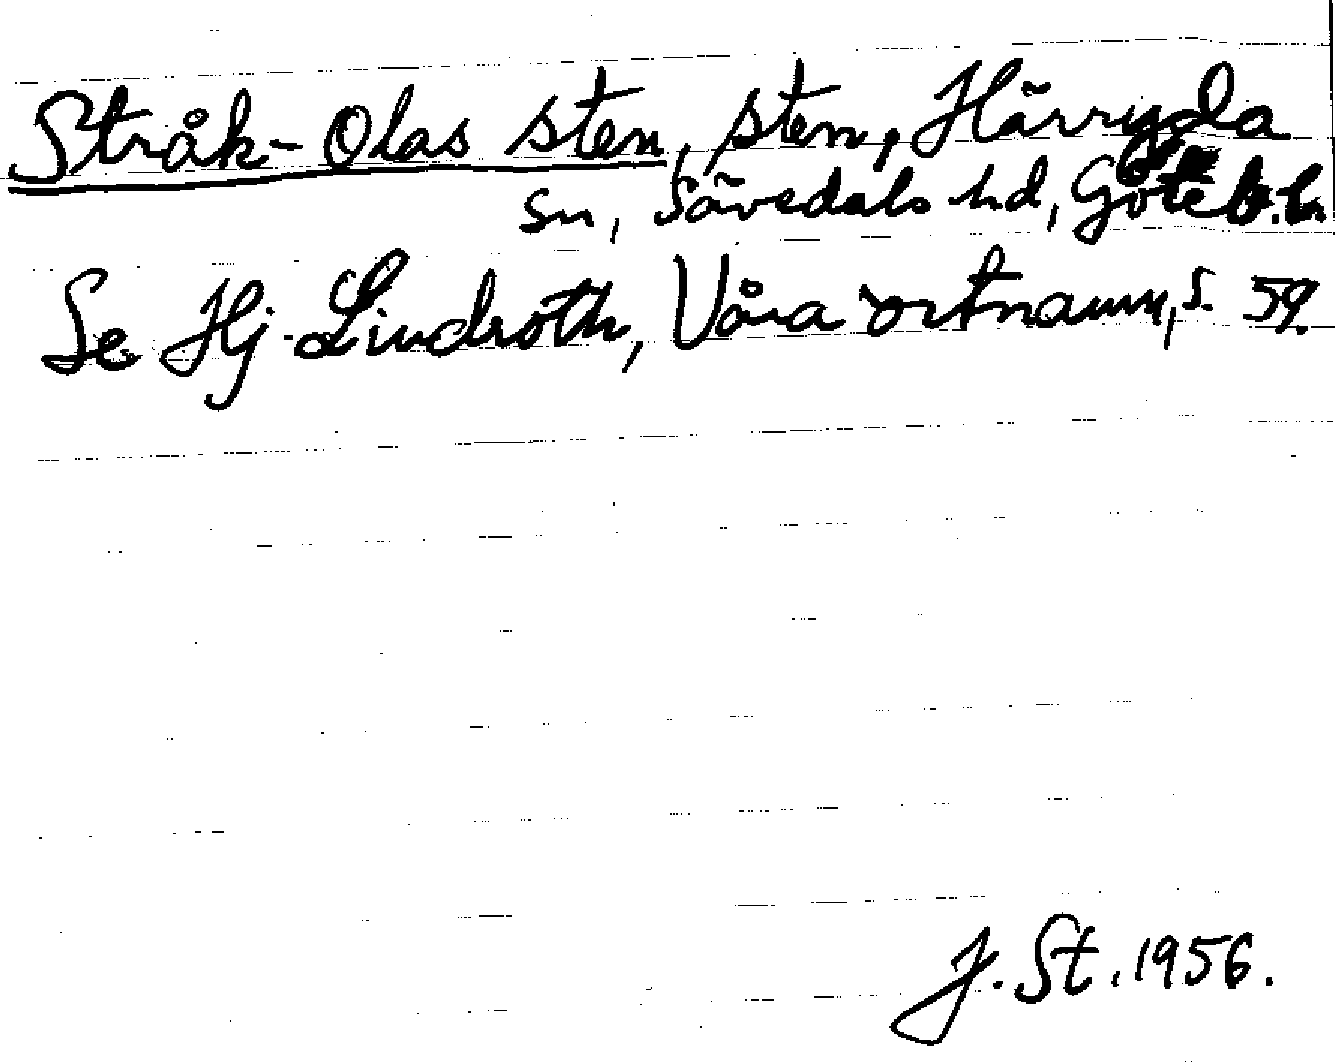 Stråk-Olas sten, sten, Härryda
sn, Sävedals hd, Göteb. ln
Se Hj. Lindroth, Våra ortnamn, s. 59.
J. St. 1956.